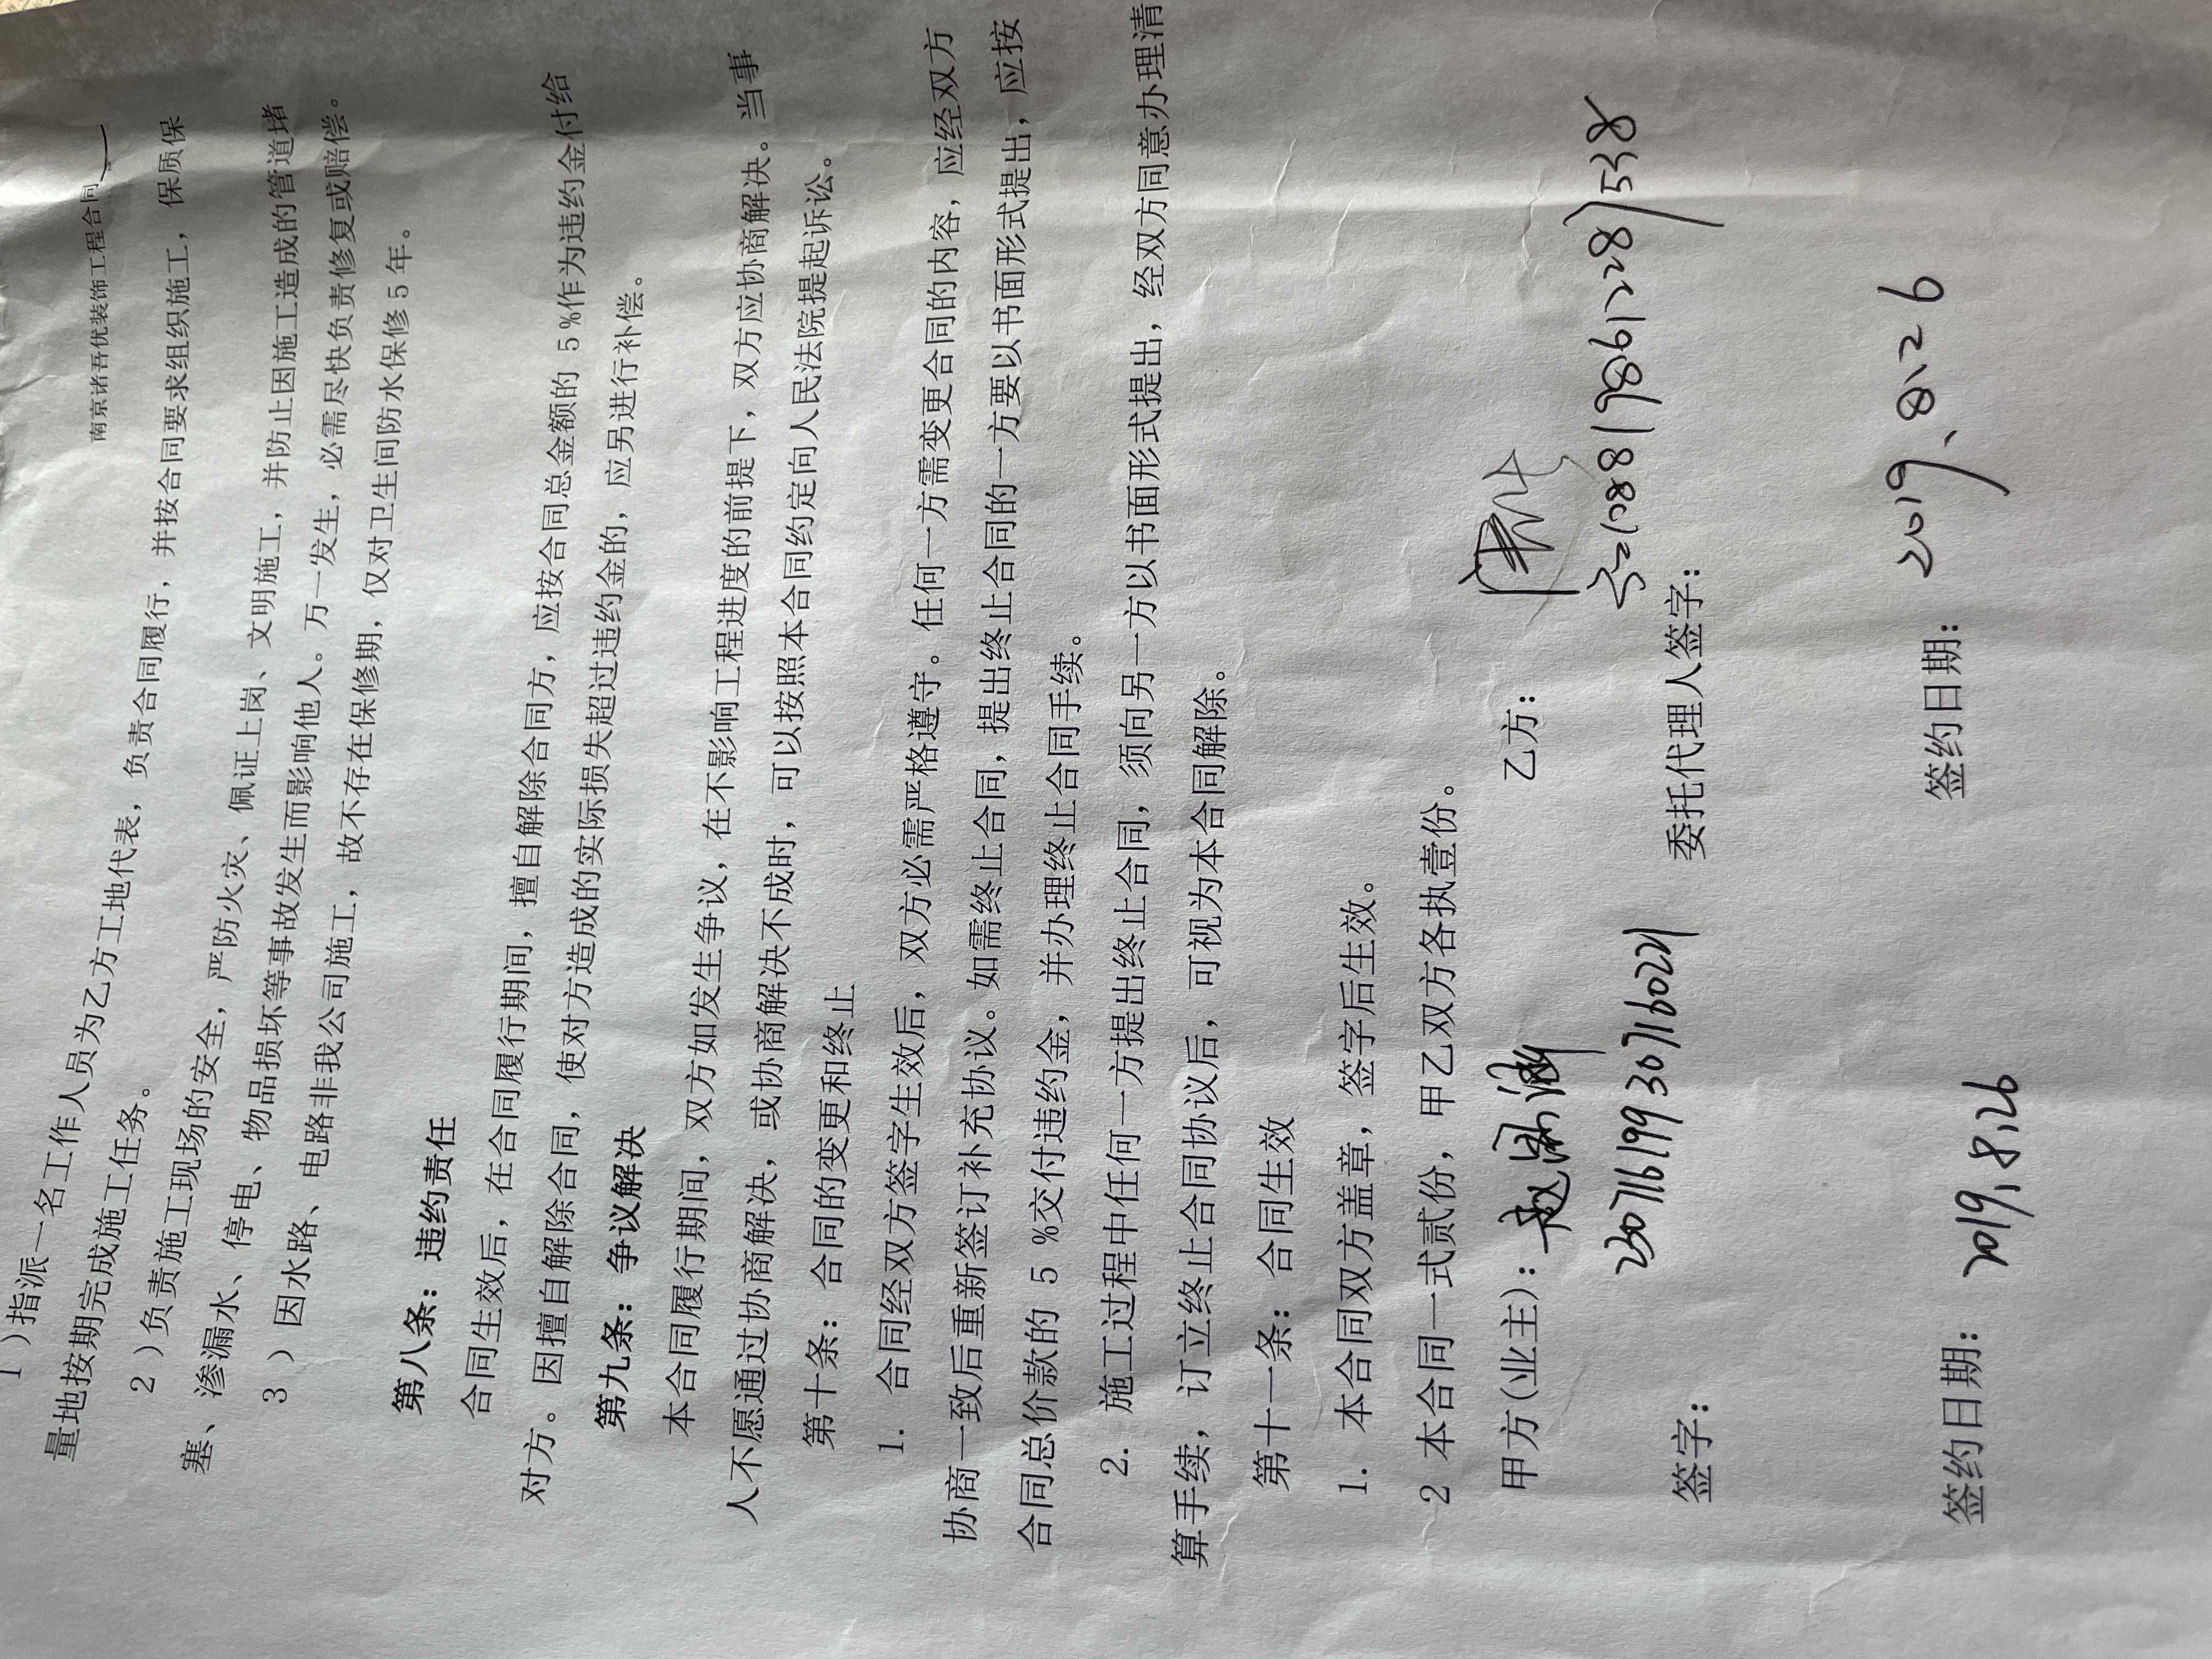 南京诸吾优装饰工程合同
1）指派一名工作人员为乙方工地代表，负责合同履行，并按合同要求组织施工，保质保
量地按期完成施工任务。
2）负责施工现场的安全，严防火灾、佩证上岗、文明施工，并防止因施工造成的管道堵
塞、渗漏水、停电、物品损坏等事故发生而影响他人。万一发生，必需尽快负责修复或赔偿。
3）因水路、电路非我公司施工，故不存在保修期，仅对卫生间防水保修5年。
第八条：违约责任
合同生效后，在合同履行期间，擅自解除合同方，应按合同总金额的 5 %作为违约金付给
对方。因擅自解除合同，使对方造成的实际损失超过违约金的，应另进行补偿。
第九条：争议解决
本合同履行期间，双方如发生争议，在不影响工程进度的前提下，双方应协商解决。当事
人不愿通过协商解决，或协商解决不成时，可以按照本合同约定向人民法院提起诉讼。
第十条：合同的变更和终止
1. 合同经双方签字生效后，双方必需严格遵守。任何一方需变更合同的内容，应经双方
协商一致后重新签订补充协议。如需终止合同，提出终止合同的一方要以书面形式提出，应按
合同总价款的 5 %交付违约金，并办理终止合同手续。
2. 施工过程中任何一方提出终止合同，须向另一方以书面形式提出，经双方同意办理清
算手续，订立终止合同协议后，可视为本合同解除。
第十一条：合同生效
1. 本合同双方盖章，签字后生效。
2 本合同一式贰份，甲乙双方各执壹份。
甲方(业主)：赵 乙方：
230716199307160021 321088197861228)538
签字： 委托代理人签字：
签约日期：2019.8.26 签约日期：2019.8.26